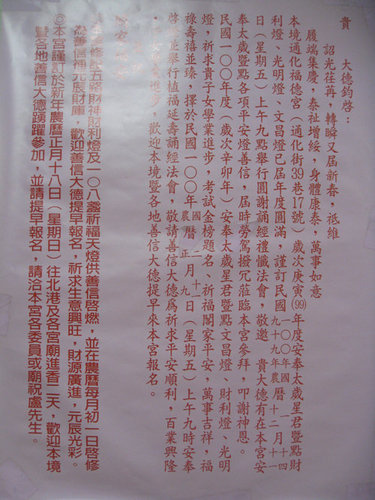 貴
大德鈞啓：
韶光荏苒，轉瞬又屆新春，祇維
履端集慶，泰社增綏，身體康泰，萬事如意
本境通化福德宮（通化街39巷17號）歲次庚寅(99)年度安奉太歲星君暨點財
利燈、光明燈、文昌燈已屆年度圓滿，謹訂民國九十九年農曆十二月十一
日（星期五）上午九點舉行圓謝誦經禮懺法會，敬邀　貴大德有在本宮安
奉太歲暨點各項平安燈善信，屆時勞駕撥冗蒞臨本宮參拜，叩謝神恩。
民國一〇〇年度（歲次辛卯年）安奉太歲星君暨點文昌燈、財利燈、光明
燈，祈求貴子女學業進步，考試金榜題名、祈福闔家平安，萬事吉祥，福
祿壽禧並臻，擇於民國一〇〇年農曆正月九日（星期五）上午九時安奉
啓燈並舉行植福延壽誦經法會，敬請善信大德為祈求平安順利，百業興隆
進步，歡迎本境暨各地善信大德提早來本宮報名。
五路財神財利燈及一〇八盞祈福天燈供善信啓燃，並在農曆每月初一日啓修
為善信補元辰財庫，歡迎善信大德提早報名，祈求生意興旺，財源廣進，元辰光彩。
◎本宮謹訂於新年農曆正月十八日（星期日）往北港及各宮廟進香二天，歡迎本境
暨各地善信大德踴躍參加，並請提早報名，請洽本宮各委員或廟祝盧先生。